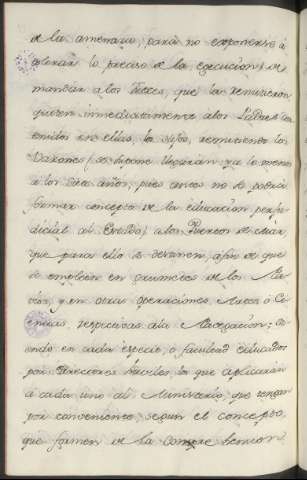 de la amenaza, para no exponerse à
alterar lo preciso de la egecucion;
mandar a los Jueces, que la remitieron
quiten inmediatamente a los Padres
tenidos en ellas, los hijos, remitiendo los
Varones (se supone llegarán ya lo menos
a los diez años, pues antes no se podria
formar concepto de la educacion, perju
dicial al Estado) a los Puertos de Mar
que para ello se destinen, afin de que
se empleen en grumetes de los Na
vios, y en otras operaciones, Artes ó Ci
encias, respectivas ala Navegacion;
endo en cada especie, ó facultad educados
por Directores haviles, los que aplicarán
á cada uno al Ministerio, que tengan
por conveniente, segun el concepto,
que formen de la comprehension